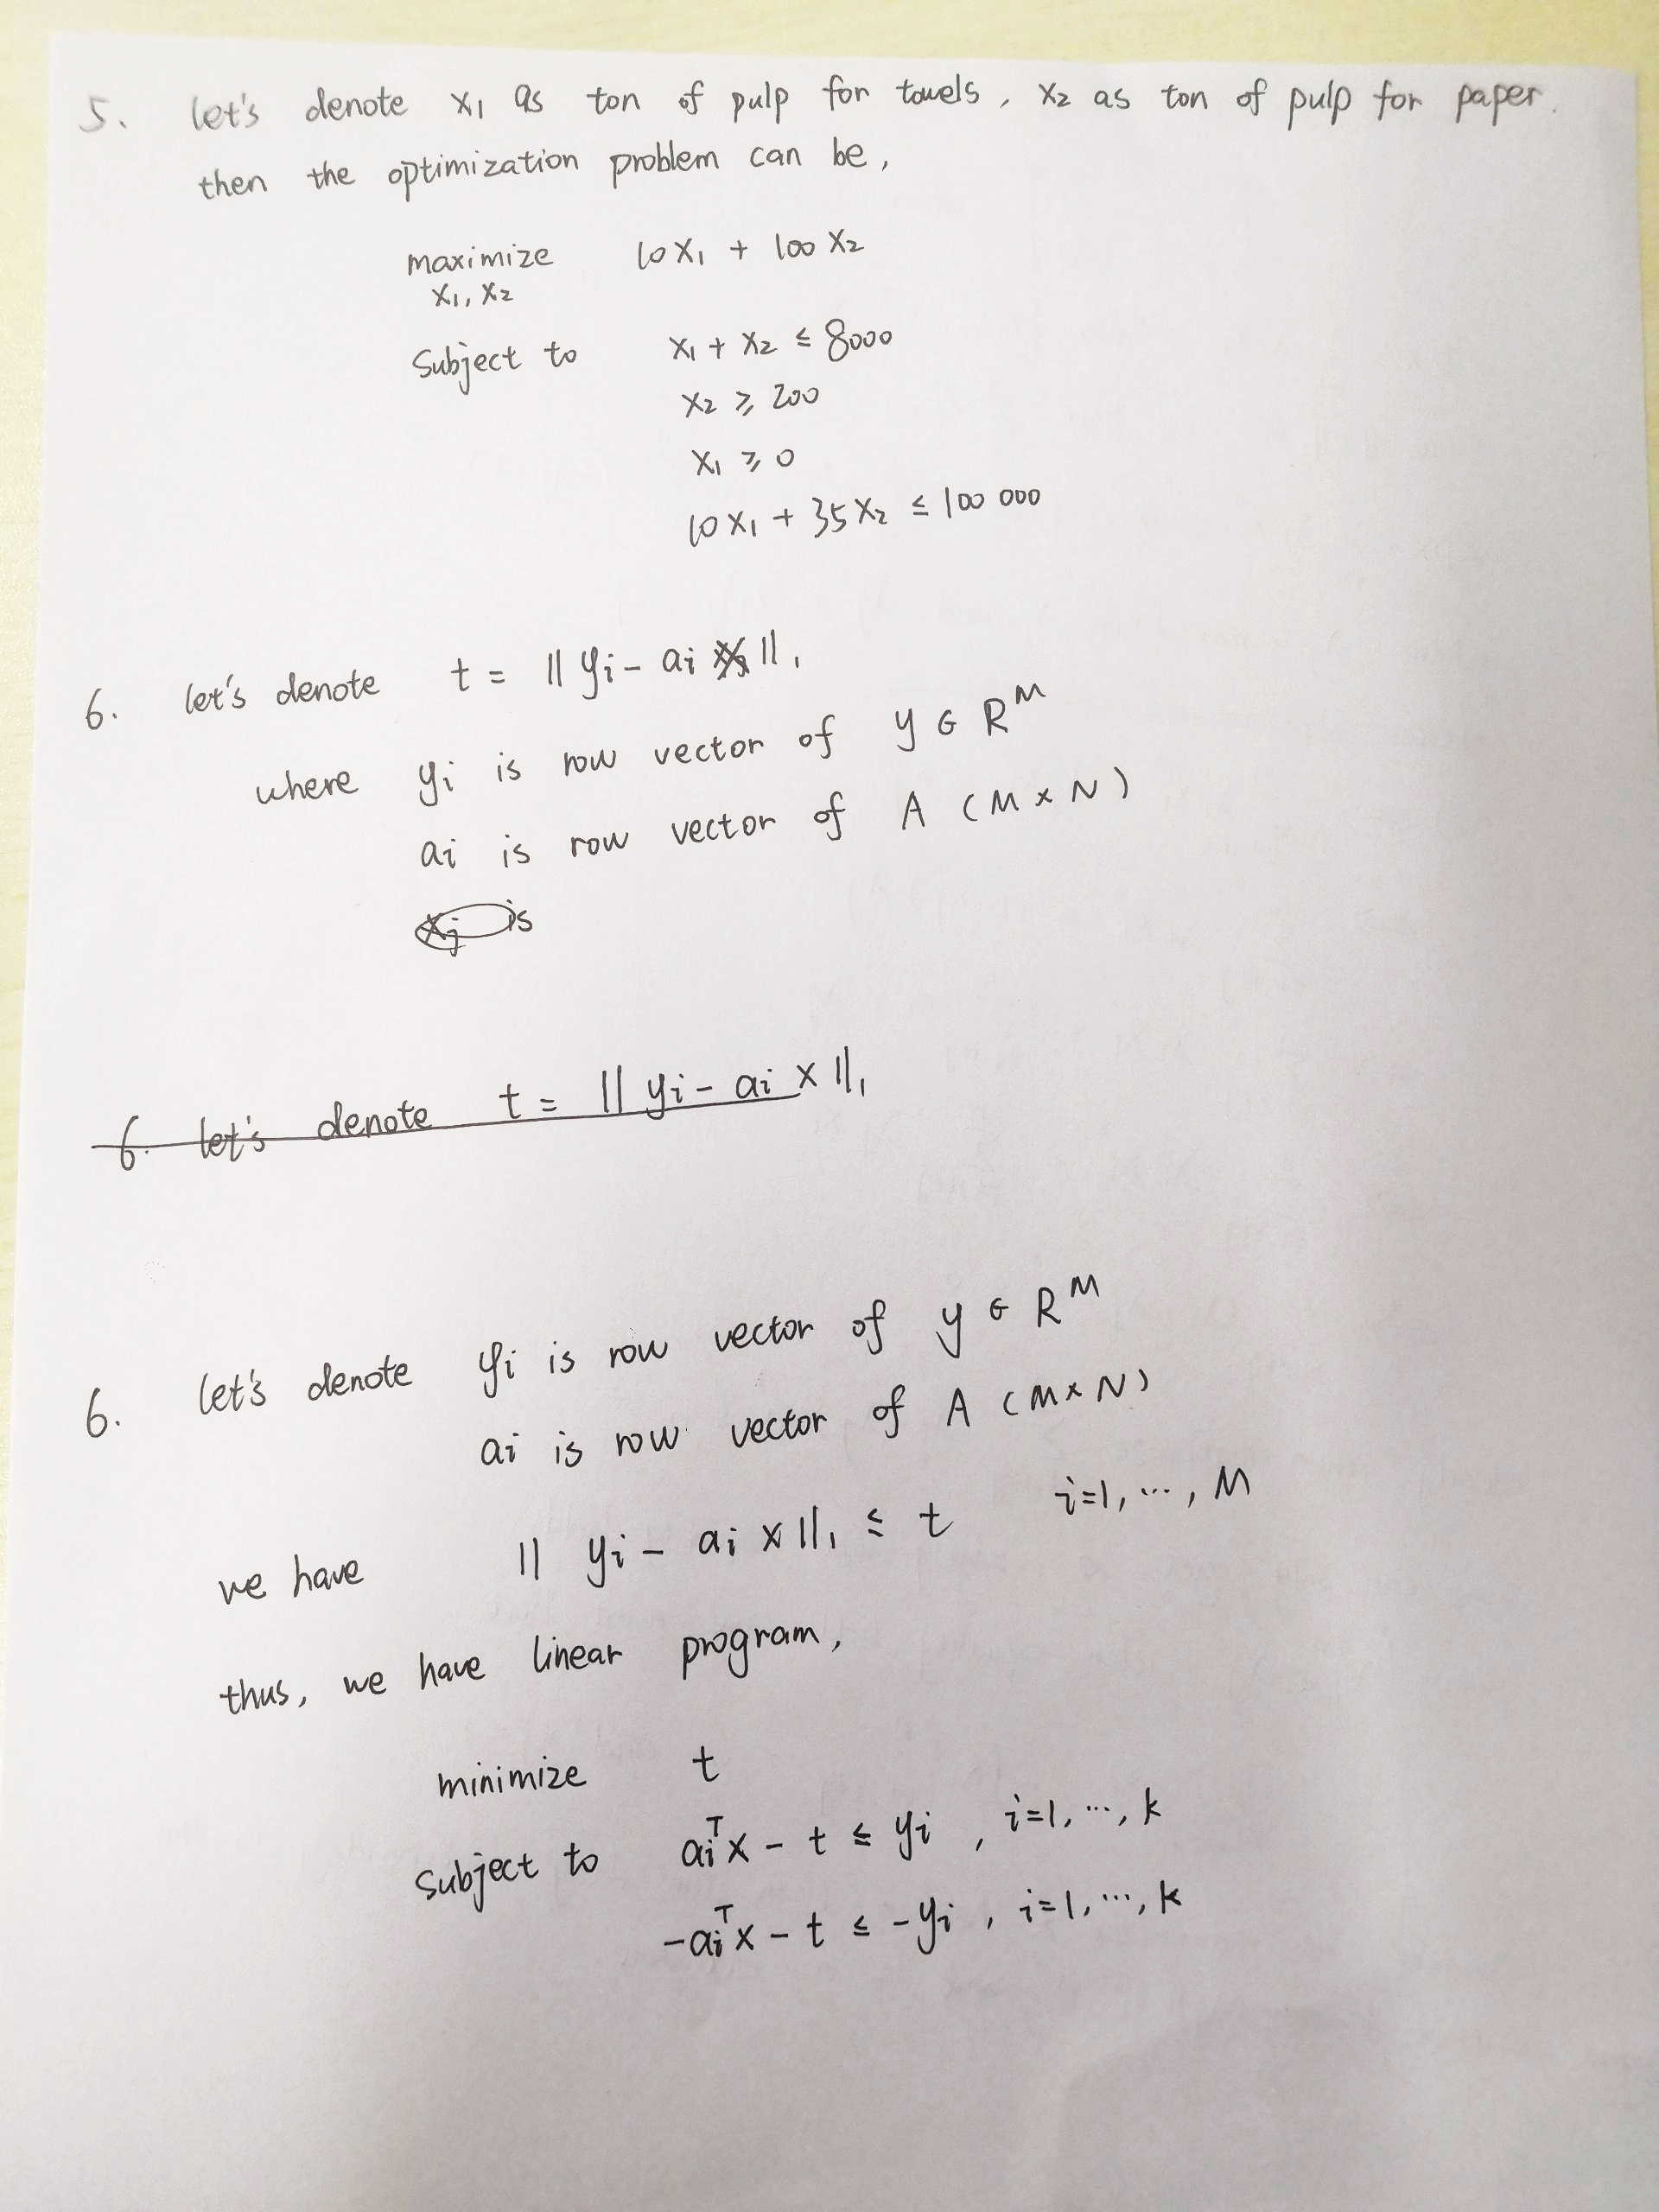 5. let's denote x₁ as ton of pulp for towels, x₂ as ton of pulp for paper.
then the optimization problem can be,
maximize 10x₁ + 100x₂
x₁, x₂
Subject to x₁ + x₂ ≤ 8000
x₂ ≥ 200
x₁ ≥ 0
10x₁ + 35x₂ ≤ 100 000
6. let's denote t = || yi - ai ||₁
where yi is row vector of y ∈ R^M
ai is row vector of A (M×N)
xj is
6. let's denote t = || yi - ai x ||₁
6. let's denote yi is row vector of y ∈ R^M
ai is row vector of A (M×N)
we have || yi - ai x ||₁ ≤ t i=1, ..., M
thus, we have linear program,
minimize t
subject to ai^T x - t ≤ yi, i=1, ..., k
-ai^T x - t ≤ -yi, i=1, ..., k